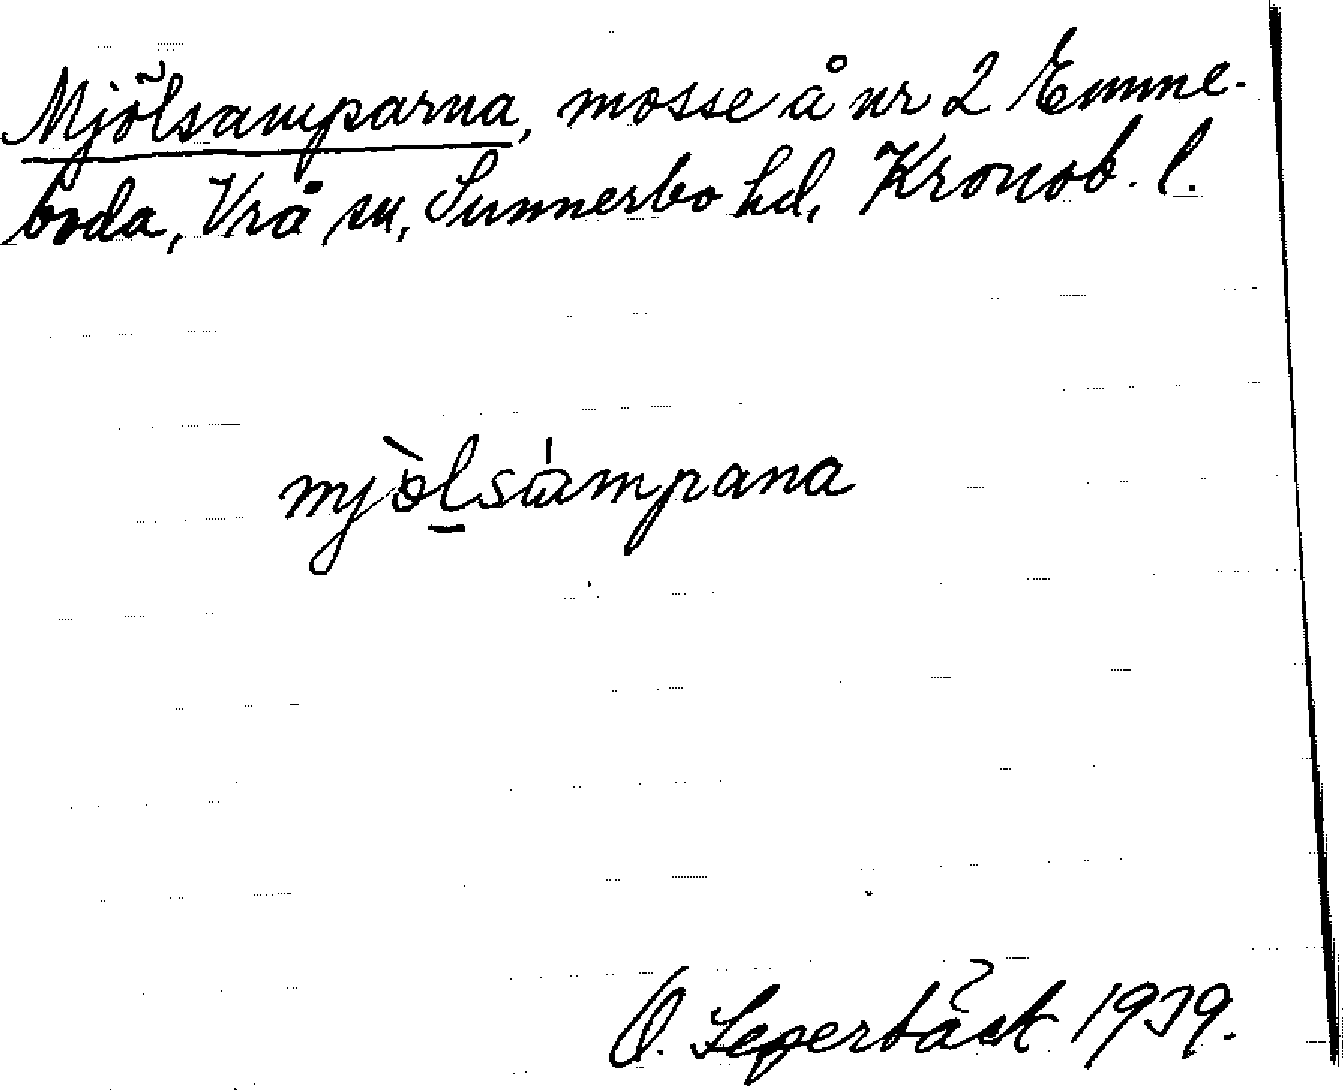 Mjölsamparna, mosse å nr 2 Emme-
boda, Vrå sn, Sunnerbo hd, Kronob. l.
mjòlsámpana
O. Segerbäck 1939.